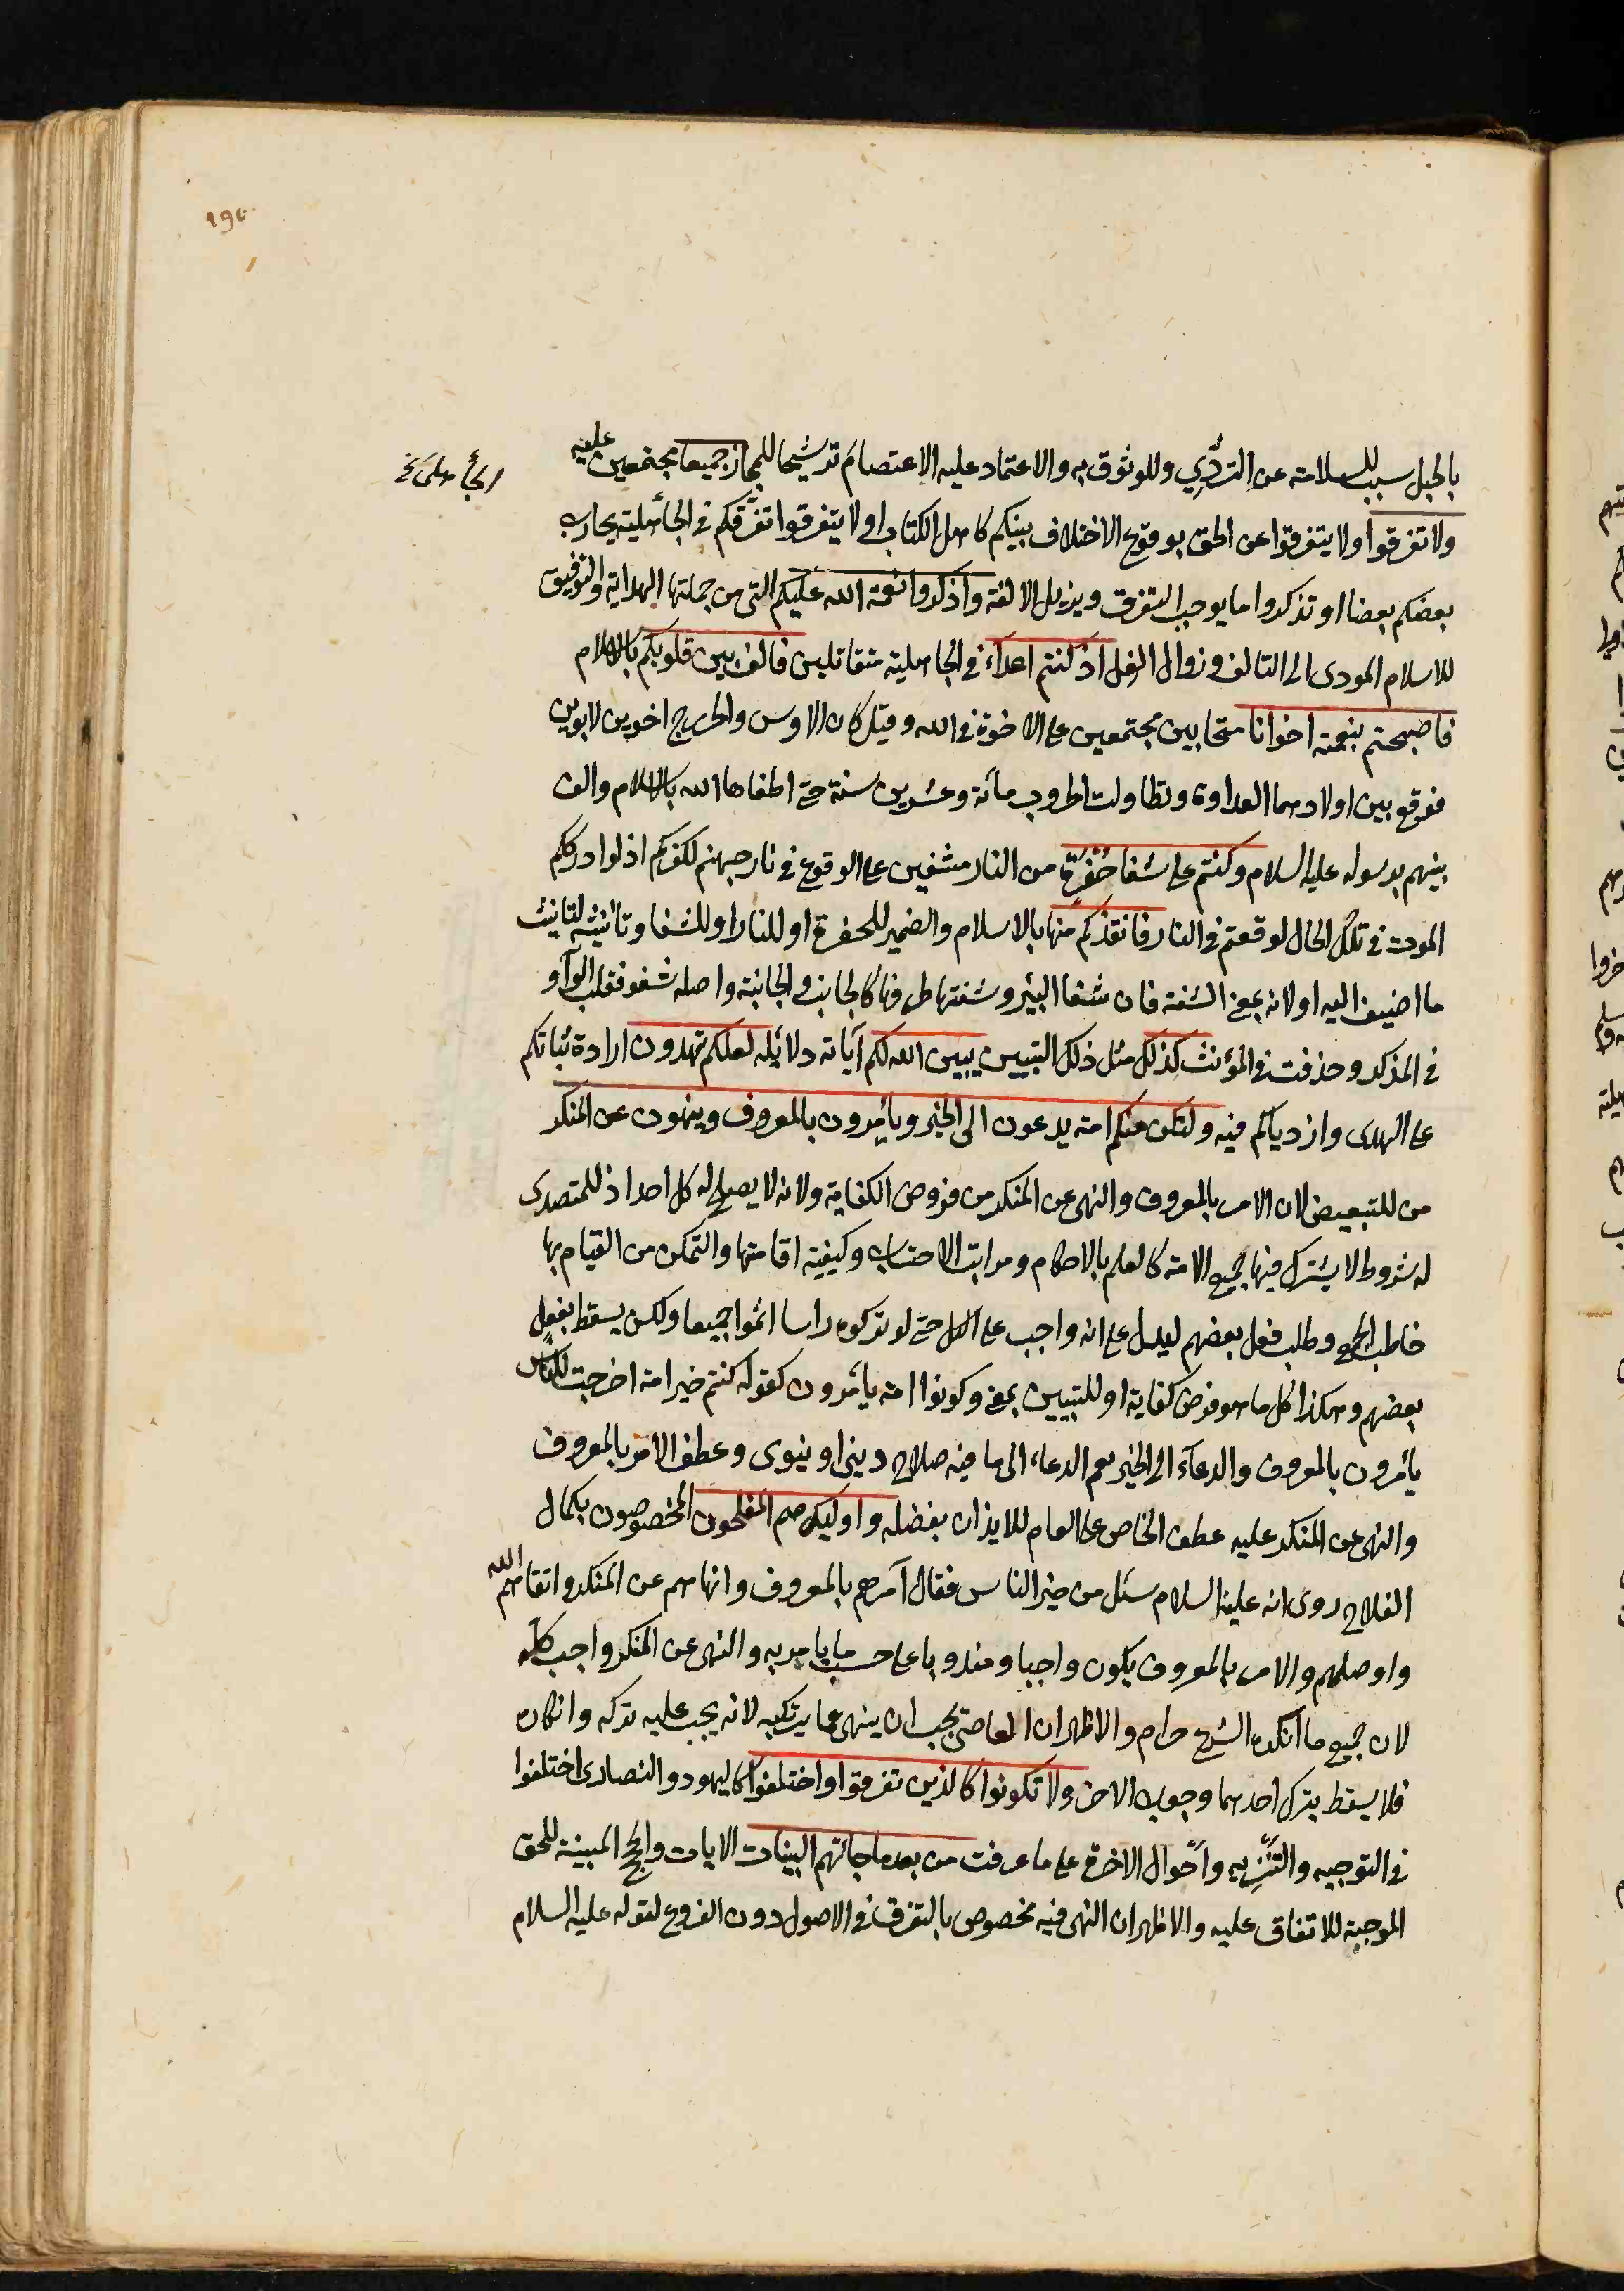 ١٩٥
بالحبل سبب للسلامة عن التردّي وللوثوق به والاعتماد عليه الاعتصام ترشيحا للمجاز جميعا مجتمعين عليه
ولا تفرقوا ولا يتفرقوا عن الحق بوقوع الاختلاف بينكم كاهل الكتاب او لا يتفرقوا تفرّقكم في الجاهلية يحارب
بعضكم بعضا او تذكروا ما يوجب التفرق ويزيل الالفة واذكروا نعمة الله عليكم التي من جملتها الهداية والتوفيق
للاسلام المودى الى التالف وزوال الغل اذ كنتم اعداء في الجاهلية متقاتلين فالف بين قلوبكم بالاسلام
فاصبحتم بنعمته اخوانا متحابين مجتمعين على الاخوة في الله وقيل كان الاوس والخزرج اخوين لابوين
فوقع بين اولادهما العداوة وتطاولت الحروب مائة وعشرين سنة حتى اطفاها الله بالاسلام والف
بينهم برسوله عليه السلام وكنتم على شفا حفرة من النار مشفين على الوقوع في نار جهنم لكفركم اذ لو ادرككم
الموت في تلك الحال لوقعتم في النار فانقذكم منها بالاسلام والضمير للحفرة او للنار او للشفا وتانيثه لتانيث
ما اضيف اليه او لانه بمعنى الشفة فان شفا البئر وشفتها طرفها كالجانب والجانبة واصله شفو فقلب الواو
في المذكر وحذفت في المؤنث كذلك مثل ذلك التبيين يبين الله لكم آياته دلائله لعلكم تهتدون ارادة ثباتكم
على الهدى وازديادكم فيه ولتكن منكم امة يدعون الى الخير ويأمرون بالمعروف وينهون عن المنكر
من للتبعيض لان الامر بالمعروف والنهى عن المنكر من فروض الكفاية ولانه لا يصلح له كل احد اذ للمتصدى
له شروط لا يشترك فيها جميع الامة كالعلم بالاحكام ومراتب الاحتساب وكيفية اقامتها والتمكن من القيام بها
خاطب الجميع وطلب فعل بعضهم ليدل على انه واجب على الكل حتى لو تركوه راسا اثموا جميعا ولكن يسقط بفعل
بعضهم وهكذا كل ما هو فرض كفاية او للتبيين بمعنى وكونوا امة يأمرون كقوله كنتم خير امة اخرجت للناس
يأمرون بالمعروف والدعاء الى الخير يعم الدعاء الى ما فيه صلاح دينى او دنيوى وعطف الامر بالمعروف
والنهى عن المنكر عليه عطف الخاص على العام للايذان بفضله واولئك هم المفلحون المخصوصون بكمال
الفلاح روى انه عليه السلام سئل من خير الناس فقال آمرهم بالمعروف وانهاهم عن المنكر واتقاهم الله
واوصلهم والامر بالمعروف يكون واجبا ومندوبا على حسب ما يامر به والنهى عن المنكر واجب كله
لان جميع ما انكره الشرع حرام والاظهر ان العاصى يجب ان ينهى عما يرتكبه لانه يجب عليه تركه وانكاره
فلا يسقط بترك احدهما وجوب الاخر ولا تكونوا كالذين تفرقوا واختلفوا كاليهود والنصارى اختلفوا
في التوحيد والتنزيه وأحوال الآخرة على ما عرفت من بعد ما جائهم البينات الايات والحجج المبينة للحق
الموجبة للاتفاق عليه والاظهر ان النهى فيه مخصوص بالتفرق في الاصول دون الفروع لقوله عليه السلام